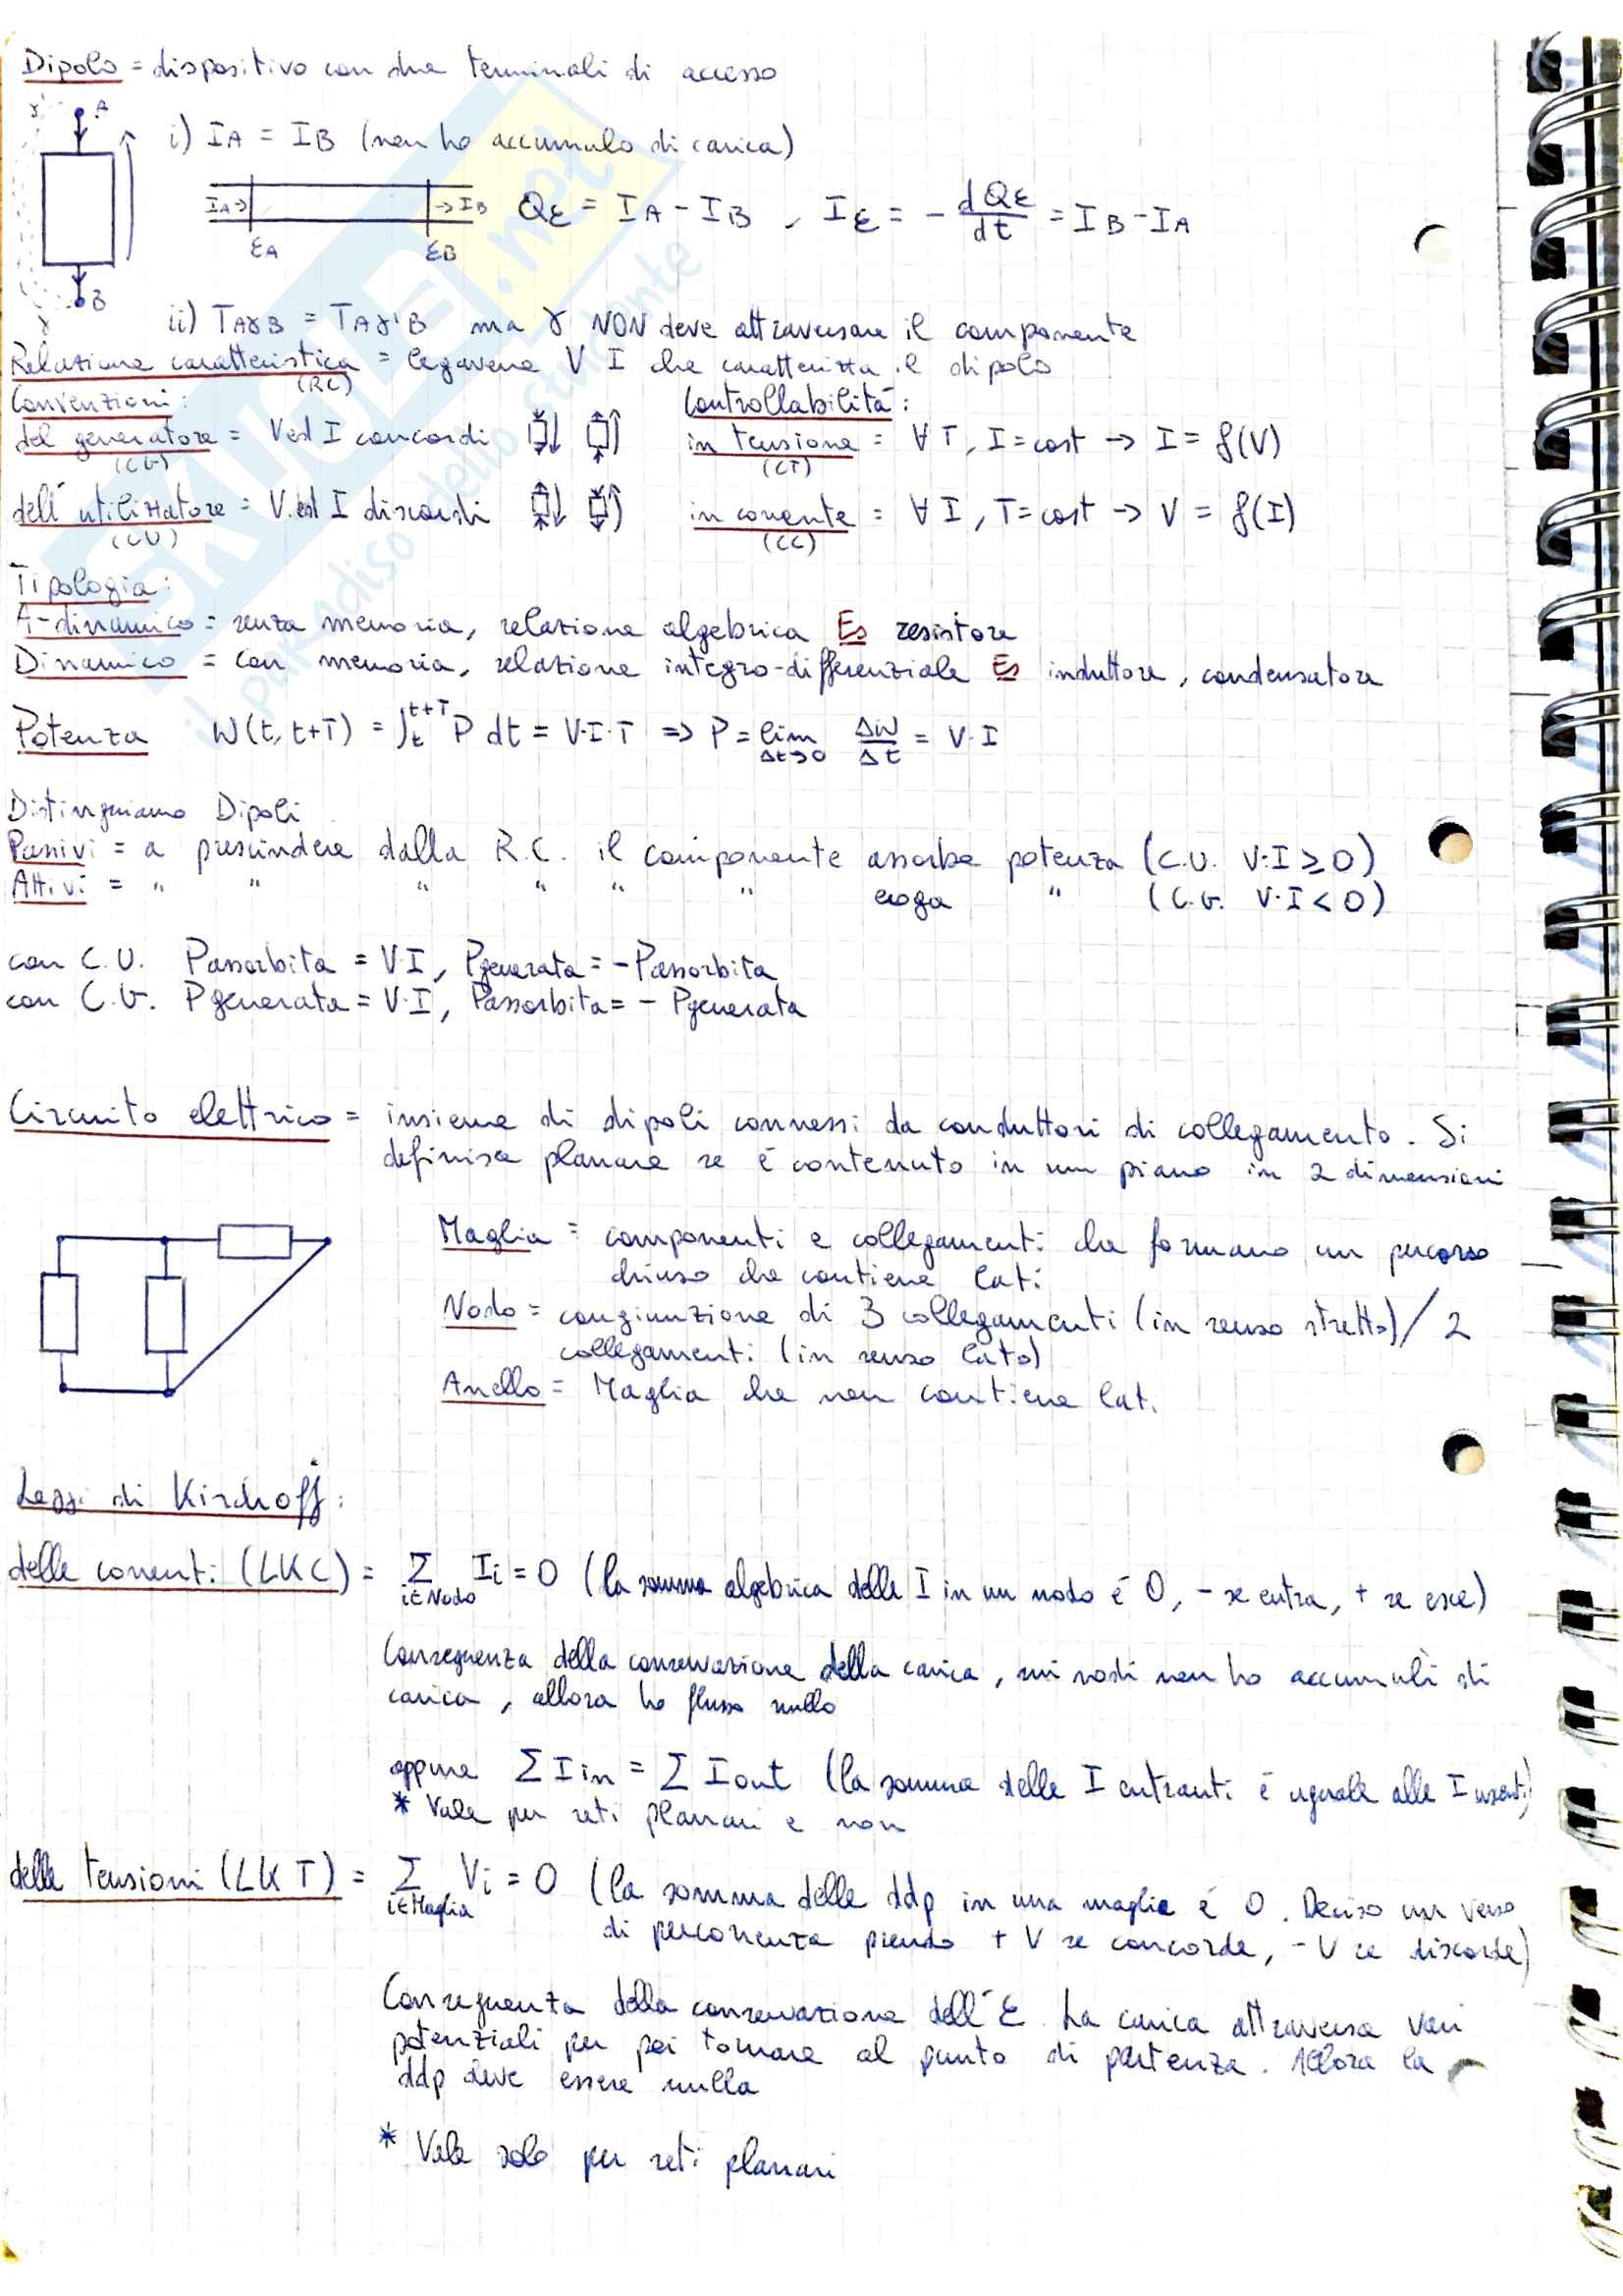 Dipolo = dispositivo con due terminali di accesso
γ' A
i) IA = IB (non ho accumulo di carica)
IA→ →IB Qε = IA - IB , Iε = - dQε/dt = IB - IA
εA εB
B
γ
ii) TAγB = TAγ'B ma γ NON deve attraversare il componente
Relazione caratteristica = legame V I che caratterizza il dipolo
(RC)
Convenzioni: Controllabilità:
del generatore = V ed I concordi in tensione = ∀ T, I = cost → I = f(V)
(CG) (CT)
dell'utilizzatore = V ed I discordi in corrente = ∀ I, T = cost → V = f(I)
(CU) (CC)
Tipologia:
A-dinamico = senza memoria, relazione algebrica Es resistore
Dinamico = con memoria, relazione integro-differenziale Es induttore, condensatore
Potenza W(t, t+T) = ∫_t^{t+T} P dt = V·I·T => P = lim_{Δt→0} ΔW/Δt = V·I
Distinguiamo Dipoli
Passivi = a prescindere dalla R.C. il componente assorbe potenza (C.U. V·I ≥ 0)
Attivi = " " " " " " eroga " (C.G. V·I < 0)
con C.U. Passorbita = V·I, Pgenerata = - Passorbita
con C.G. Pgenerata = V·I, Passorbita = - Pgenerata
Circuito elettrico = insieme di dipoli connessi da conduttori di collegamento. Si
definisce planare se é contenuto in un piano in 2 dimensioni
Maglia = componenti e collegamenti che formano un percorso
chiuso che contiene lati
Nodo = congiunzione di 3 collegamenti (in senso stretto) / 2
collegamenti (in senso lato)
Anello = Maglia che non contiene lati
Leggi di Kirchoff:
delle correnti (LKC) = Σ_{i∈Nodo} Ii = 0 (la somma algebrica delle I in un nodo é 0, - se entra, + se esce)
Conseguenza della conservazione della carica, nei nodi non ho accumuli di
carica, allora ho flusso nullo
oppure Σ Iin = Σ Iout (la somma delle I entranti é uguale alle I uscenti)
* Vale per reti planari e non
delle tensioni (LKT) = Σ_{i∈Maglia} Vi = 0 (la somma delle ddp in una maglia é 0. Deciso un verso
di percorrenza prendo + V se concorde, - V se discorde)
Conseguenza della conservazione dell'ε. La carica attraversa vari
potenziali per poi tornare al punto di partenza. Allora la
ddp deve essere nulla
* Vale solo per reti planari
.net
il paradiso dello studente